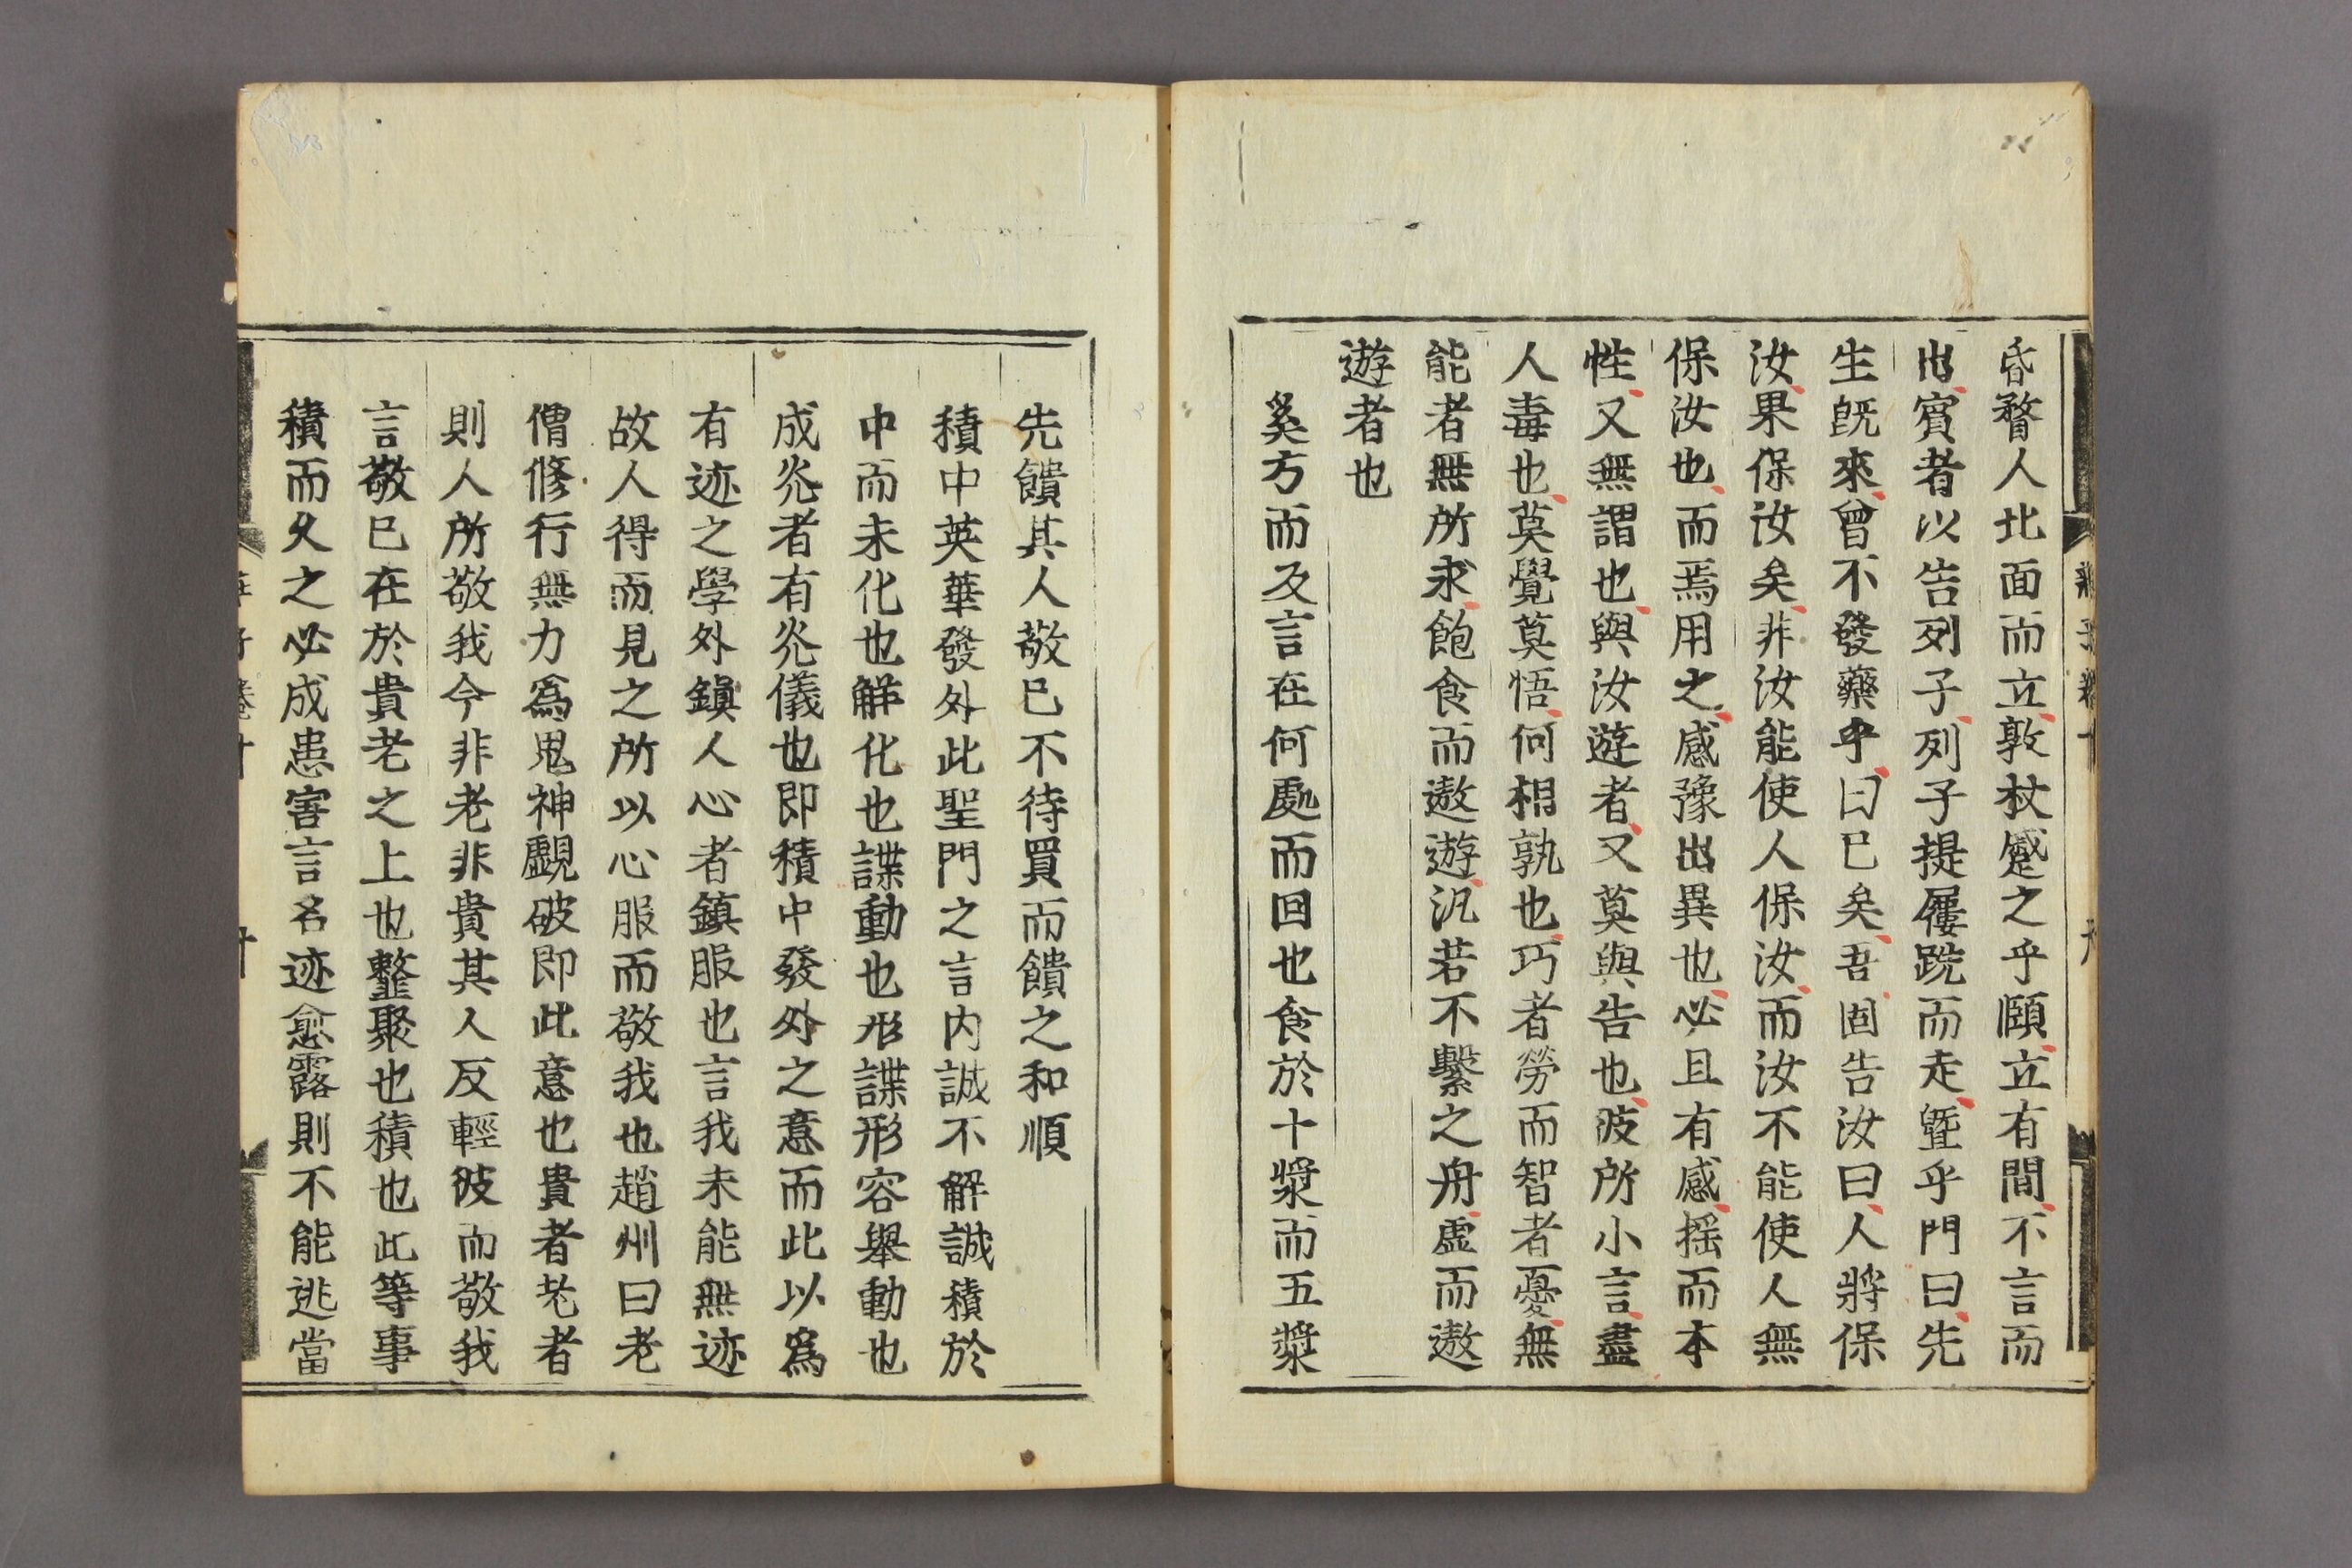 昏瞀人北面而立敦杖蹙之乎頤立有間不言而
出賓者以告列子列子提屨跣而走曁乎門曰先
生旣來曾不發藥乎曰已矣吾固告汝曰人將保
汝果保汝矣非汝能使人保汝而汝不能使人無
保汝也而焉用之感豫出異也必且有感搖而本
性又無謂也與汝遊者又莫與告也彼所小言盡
人毒也莫覺莫悟何相孰也巧者勞而智者憂無
能者無所求飽食而遨遊汎若不繫之舟虛而遨
遊者也
奚方而及言在何處而回也食於十漿而五漿
先饋其人敬已不待買而饋之和順
積中英華發外此聖門之言內誠不解誠積於
中而未化也解化也諜動也形諜形容舉動也
成光者有光儀也即積中發外之意而此以爲
有迹之學外鎭人心者鎭服也言我未能無迹
故人得而見之所以心服而敬我也趙州曰老
僧修行無力爲鬼神覷破即此意也貴者老者
則人所敬我今非老非貴其人反輕彼而敬我
言敬已在於貴老之上也韲聚也積也此等事
積而久之必成患害言名迹愈露則不能逃當